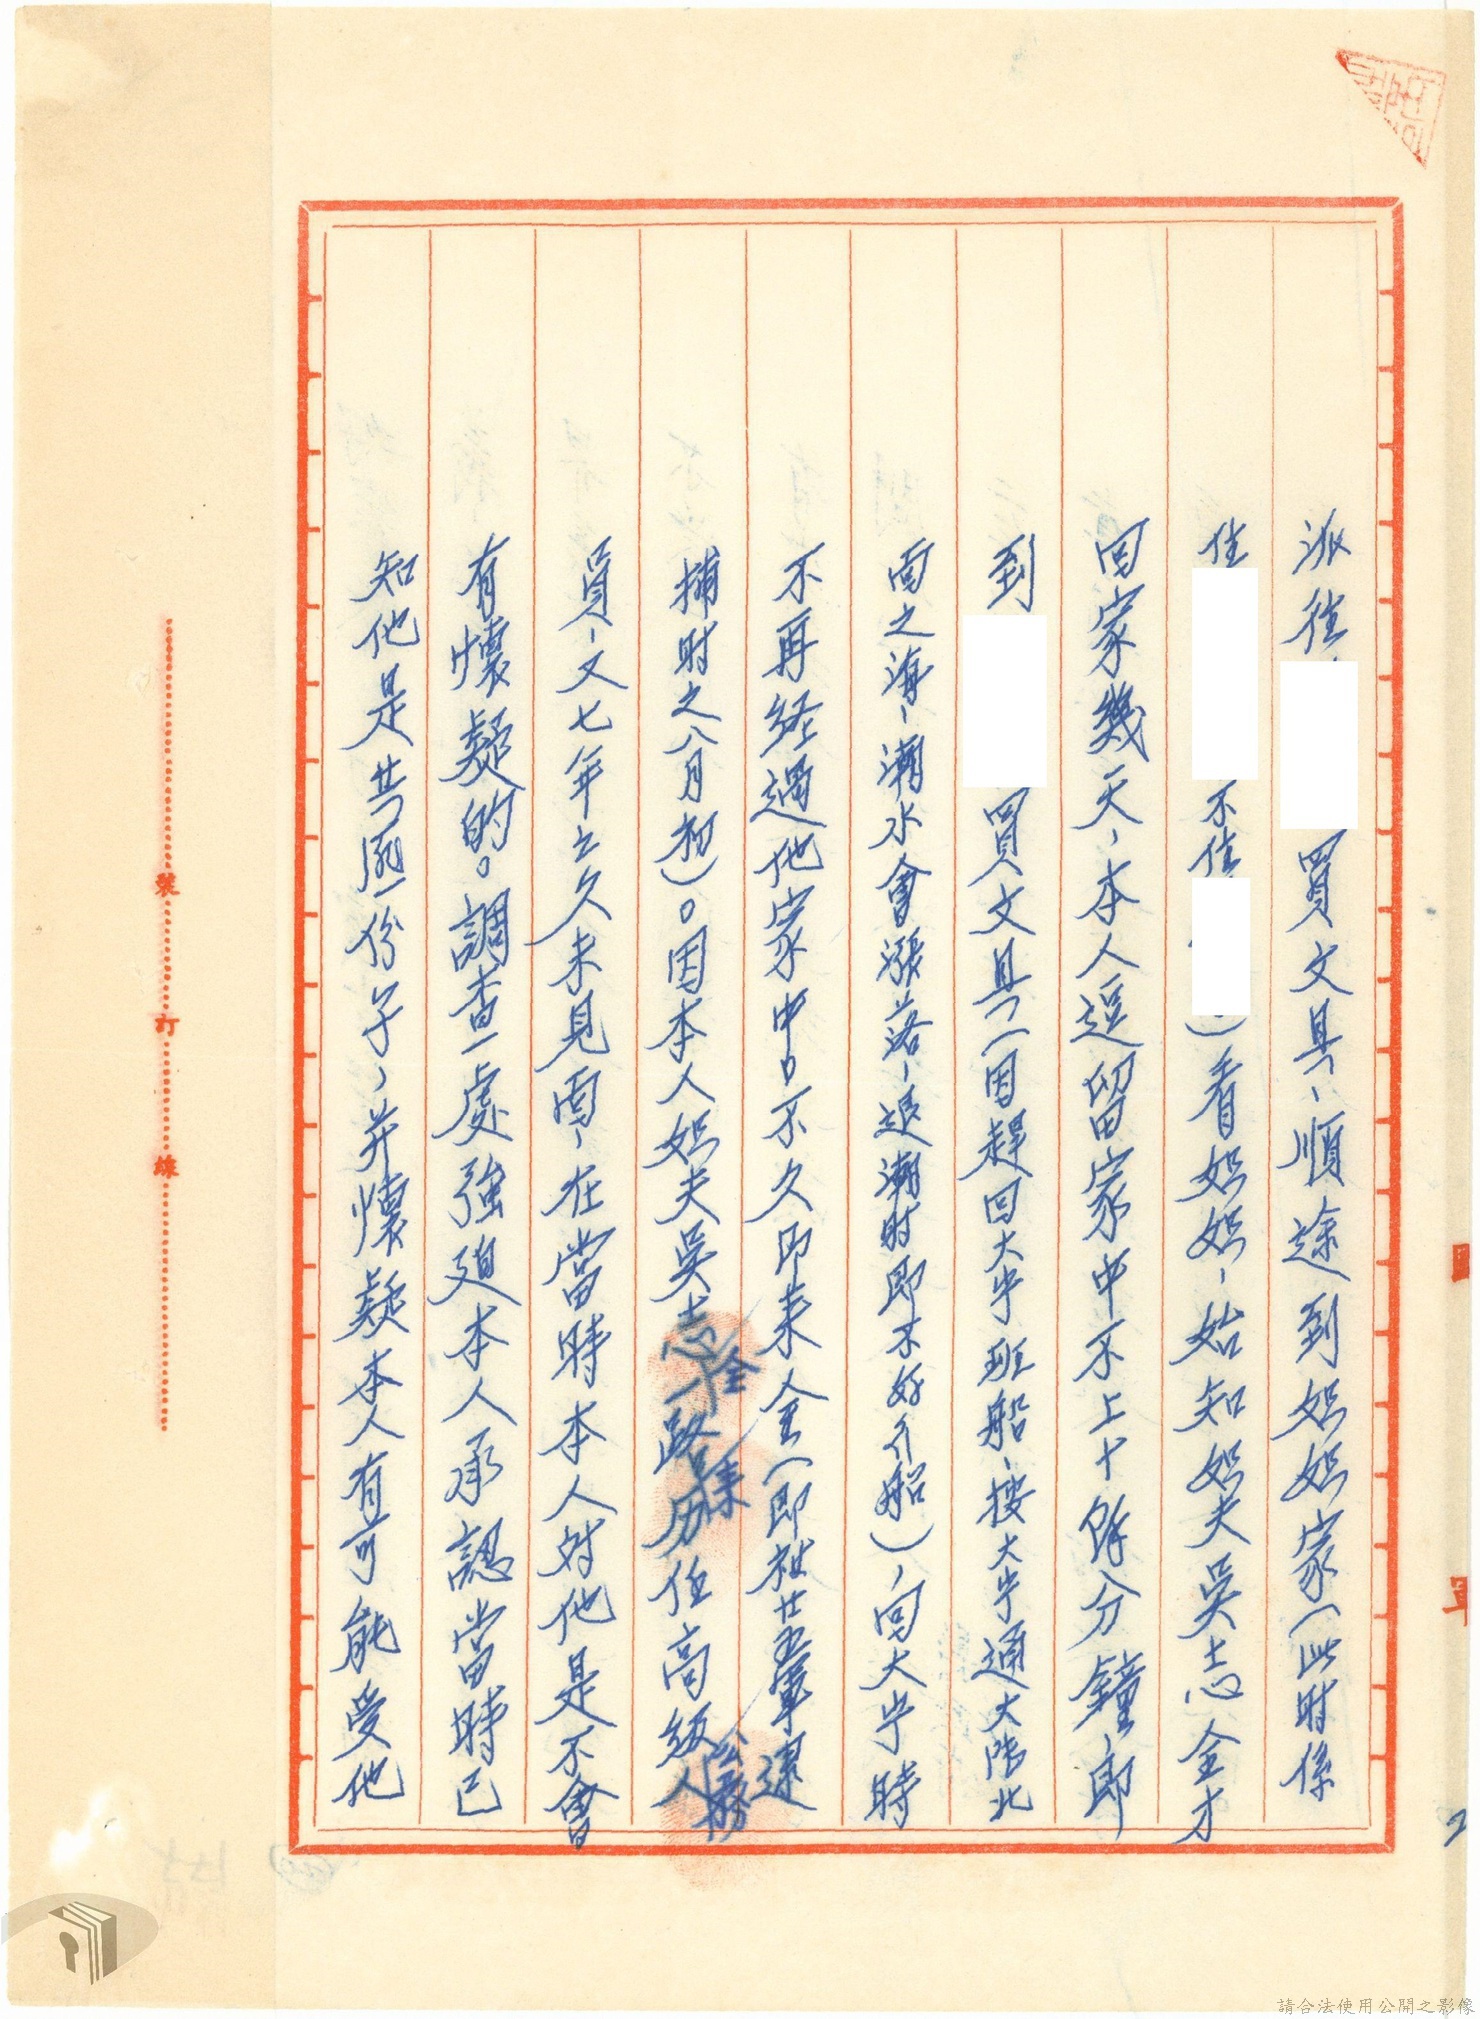 派往 買文具、順途到姐姐家（此时係
住 不住 ）看姐姐、始知姐夫吳志全才
回家幾天、本人逗留家中不上十餘分鐘即
到 買文具（因趕回大字班船、接大字通大陸北
面之海、潮水會漲落、退潮时即不好行船）、回大字時
不再経過他家中。不久即来金（即被廿五軍逮
捕时之八月初）。因本人姐夫吳志全 历任高級公務人
員、又七年之久未見面、在當時本人对他是不會
有懷疑的。調查一處強廹本人承認當時已
知他是共匪一份子、并懷疑本人有可能受他
裝 訂 線
2
請合法使用公開之影像